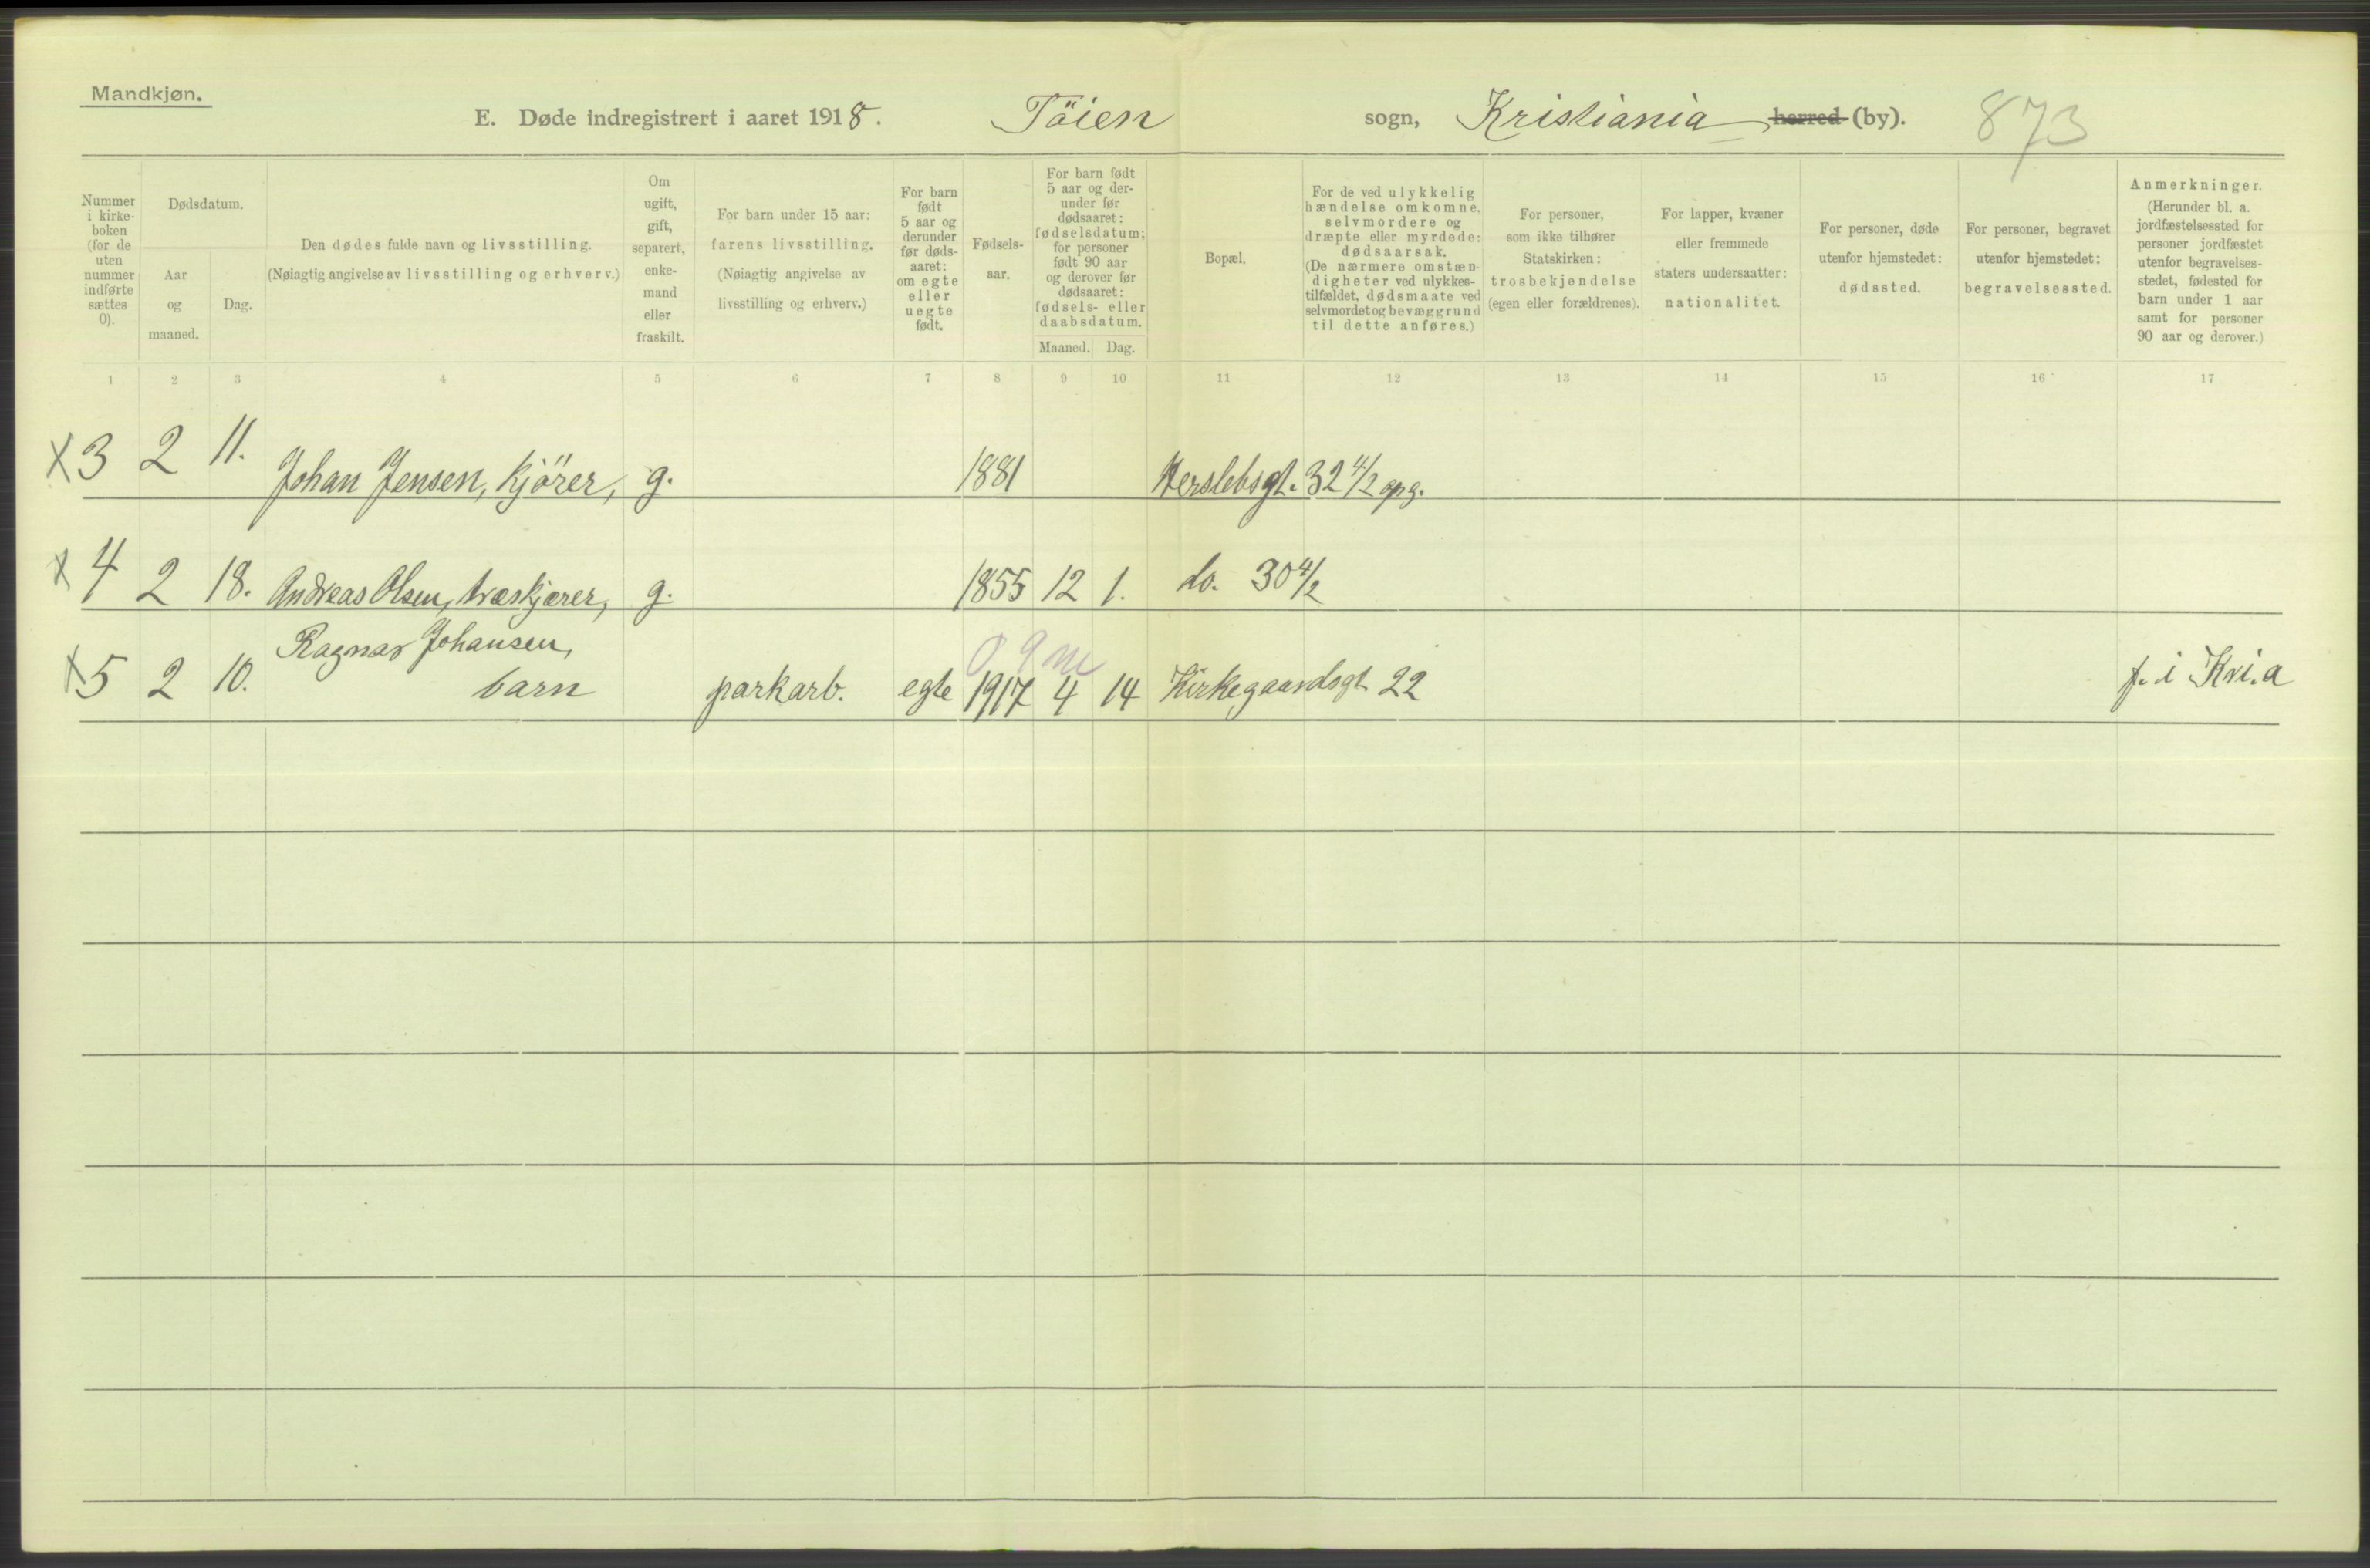 Mandkjøn.
E. Døde indregistrert i aaret 1918. Töien sogn, Kristiania herred (by). 873
Nummer i kirke- boken (for de uten nummer indførte sættes 0).
Dødsdatum.
Aar og maaned.
Dag.
Den dødes fulde navn og livsstilling.
(Nøiagtig angivelse av livsstilling og erhverv.)
Om ugift, gift, separert, enke- mand eller fraskilt.
For barn under 15 aar: farens livsstilling.
(Nøiagtig angivelse av livsstilling og erhverv.)
For barn født 5 aar og derunder før døds- aaret: om egte eller uegte født.
Fødsels- aar.
For barn født 5 aar og der- under før dødsaaret: fødselsdatum; for personer født 90 aar og derover før dødsaaret: fødsels- eller daabsdatum.
Maaned. Dag.
Bopæl.
For de ved ulykkelig hændelse omkomne, selvmordere og dræpte eller myrdede: dødsaarsak.
(De nærmere omstæn- digheter ved ulykkes- tilfældet, dødsmaate ved selvmordet og bevæggrund til dette anføres.)
For personer, som ikke tilhører Statskirken: trosbekjendelse (egen eller forældrenes).
For lapper, kvæner eller fremmede staters undersaatter: nationalitet.
For personer, døde utenfor hjemstedet: dødssted.
For personer, begravet utenfor hjemstedet: begravelsessted.
Anmerkninger.
(Herunder bl. a. jordfæstelsessted for personer jordfæstet utenfor begravelses- stedet, fødested for barn under 1 aar samt for personer 90 aar og derover.)
1 2 3 4 5 6 7 8 9 10 11 12 13 14 15 16 17
x 3 2 11. Johan Jensen, kjörer, g. 1881 Herslebsgt. 32 4/2 opg.
x 4 2 18. Andreas Olsen, træskjærer, g. 1855 12 1. do. 30 4/2
Ragnar Johansen, 0 9 m
x 5 2 10. barn parkarb. egte 1917 4 14 Kirkegaardsgt 22 f. i Kri.a